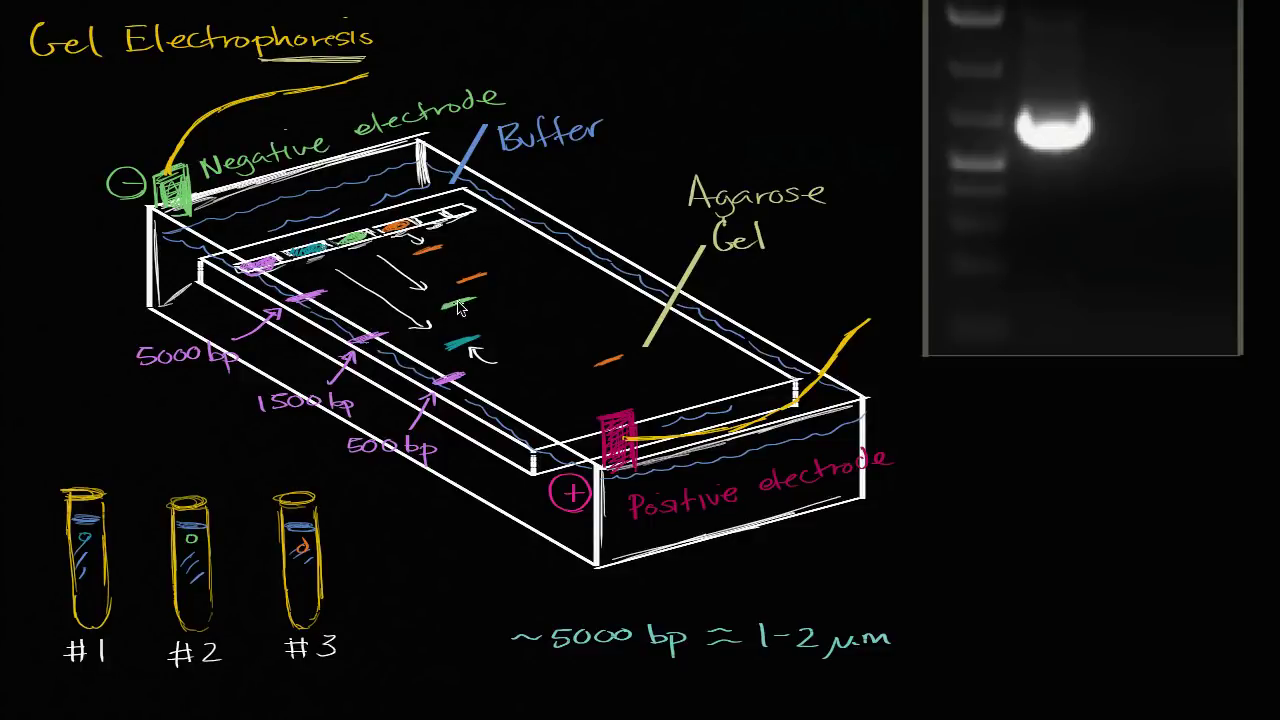 Gel Electrophoresis
Negative electrode
−
Buffer
Agarose
Gel
5000 bp
1500 bp
500 bp
+
Positive electrode
#1
#2
#3
~5000 bp ≈ 1-2 μm